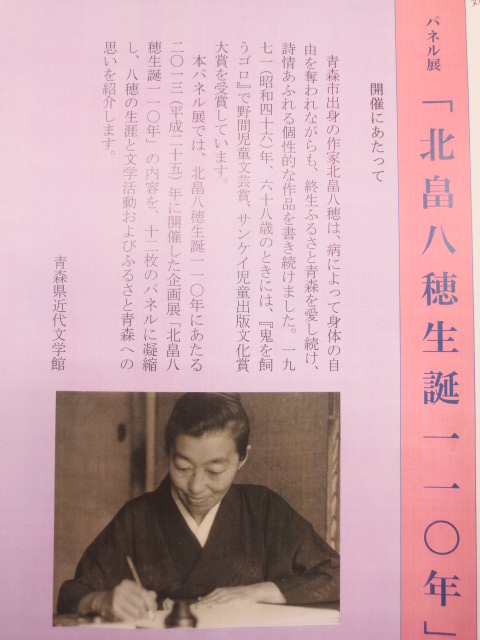 パネル展 「北畠八穂生誕一一〇年」
開催にあたって
青森市出身の作家北畠八穂は、病によって身体の自
由を奪われながらも、終生ふるさと青森を愛し続け、
詩情あふれる個性的な作品を書き続けました。一九
七一(昭和四十六)年、六十八歳のときには、『鬼を飼
うゴロ』で野間児童文芸賞、サンケイ児童出版文化賞
大賞を受賞しています。
本パネル展では、北畠八穂生誕一一〇年にあたる
二〇一三(平成二十五)年に開催した企画展「北畠八
穂生誕一一〇年」の内容を、十二枚のパネルに凝縮
し、八穂の生涯と文学活動およびふるさと青森への
思いを紹介します。
青森県近代文学館